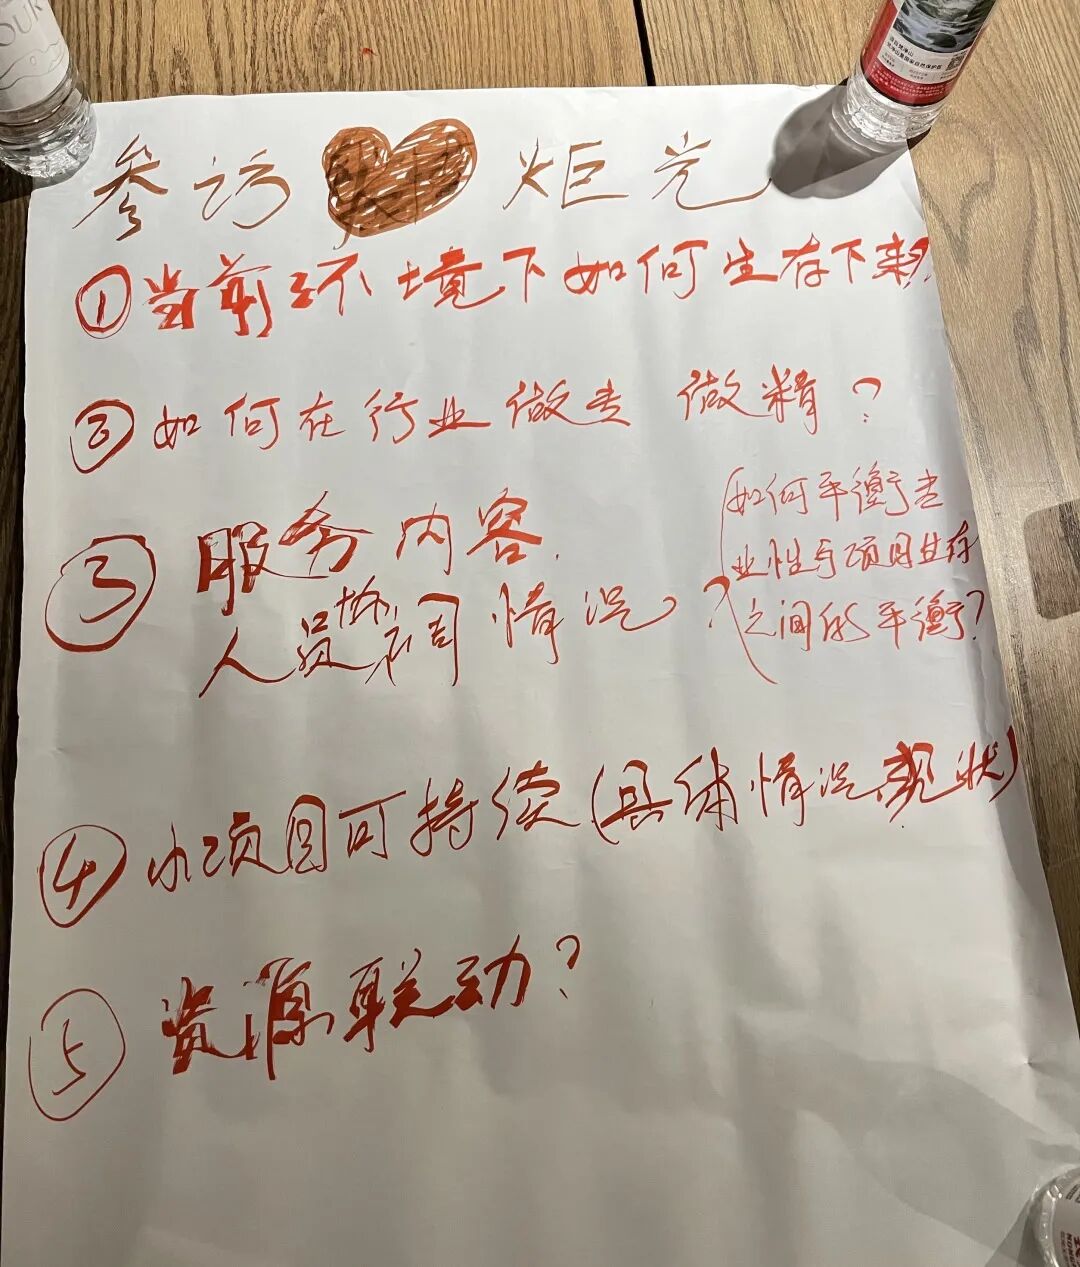 参访 炬光
①当前环境下如何生存下来?
②如何在行业做专 做精?
③服务内容.
人员协同情况?
(如何平衡专
业性与项目生存
之间的平衡?
④小项目可持续(具体情况 现状)
⑤资源联动?